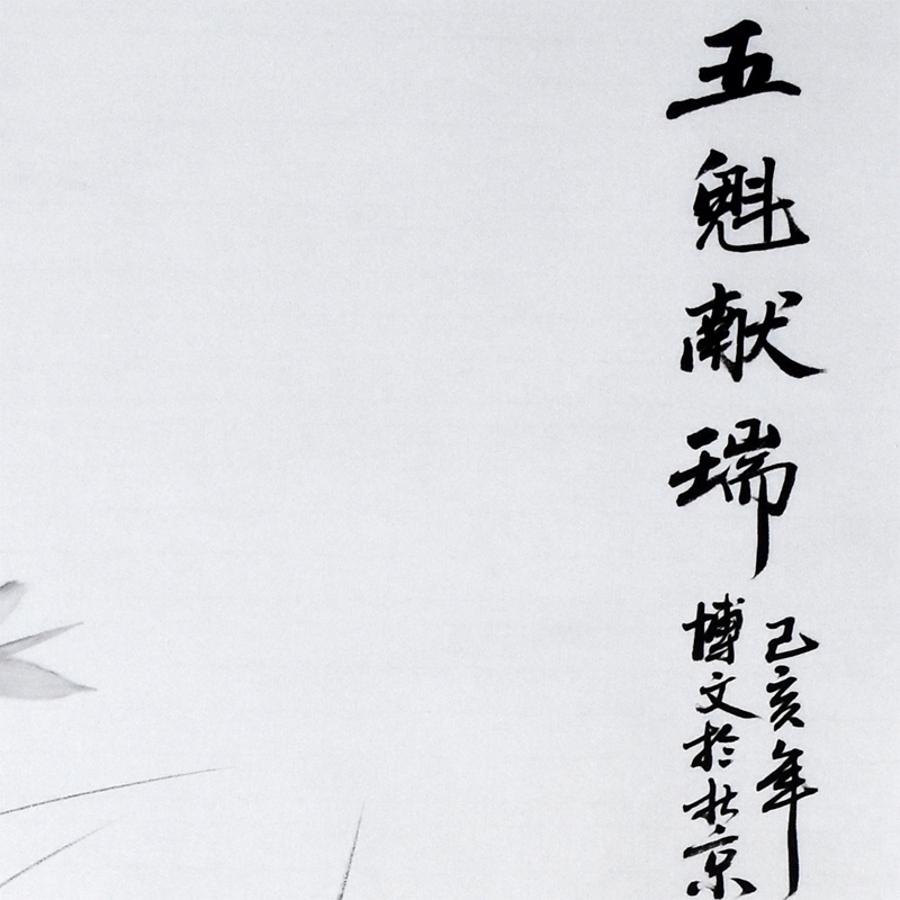 五魁献瑞
己亥年
博文於北京